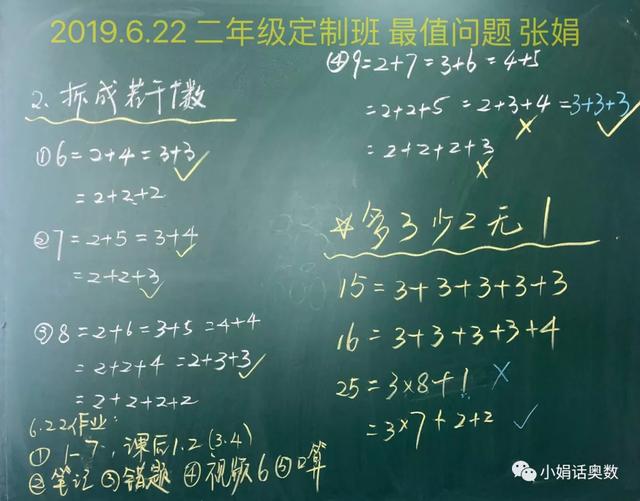 2019.6.22 二年级定制班 最值问题 张娟
2、拆成若干个数
①6=2+4=3+3
=2+2+2
②7=2+5=3+4
=2+2+3
③8=2+6=3+5=4+4
=2+2+4=2+3+3
=2+2+2+2
6.22作业:
①1-7,课后1.2(3.4)
②笔记③错题④视频6⑤口算
④9=2+7=3+6=4+5
=2+2+5=2+3+4=3+3+3
=2+2+2+3
☆多3少2无1
15=3+3+3+3+3
16=3+3+3+3+4
25=3×8+1
=3×7+2+2
小娟话奥数